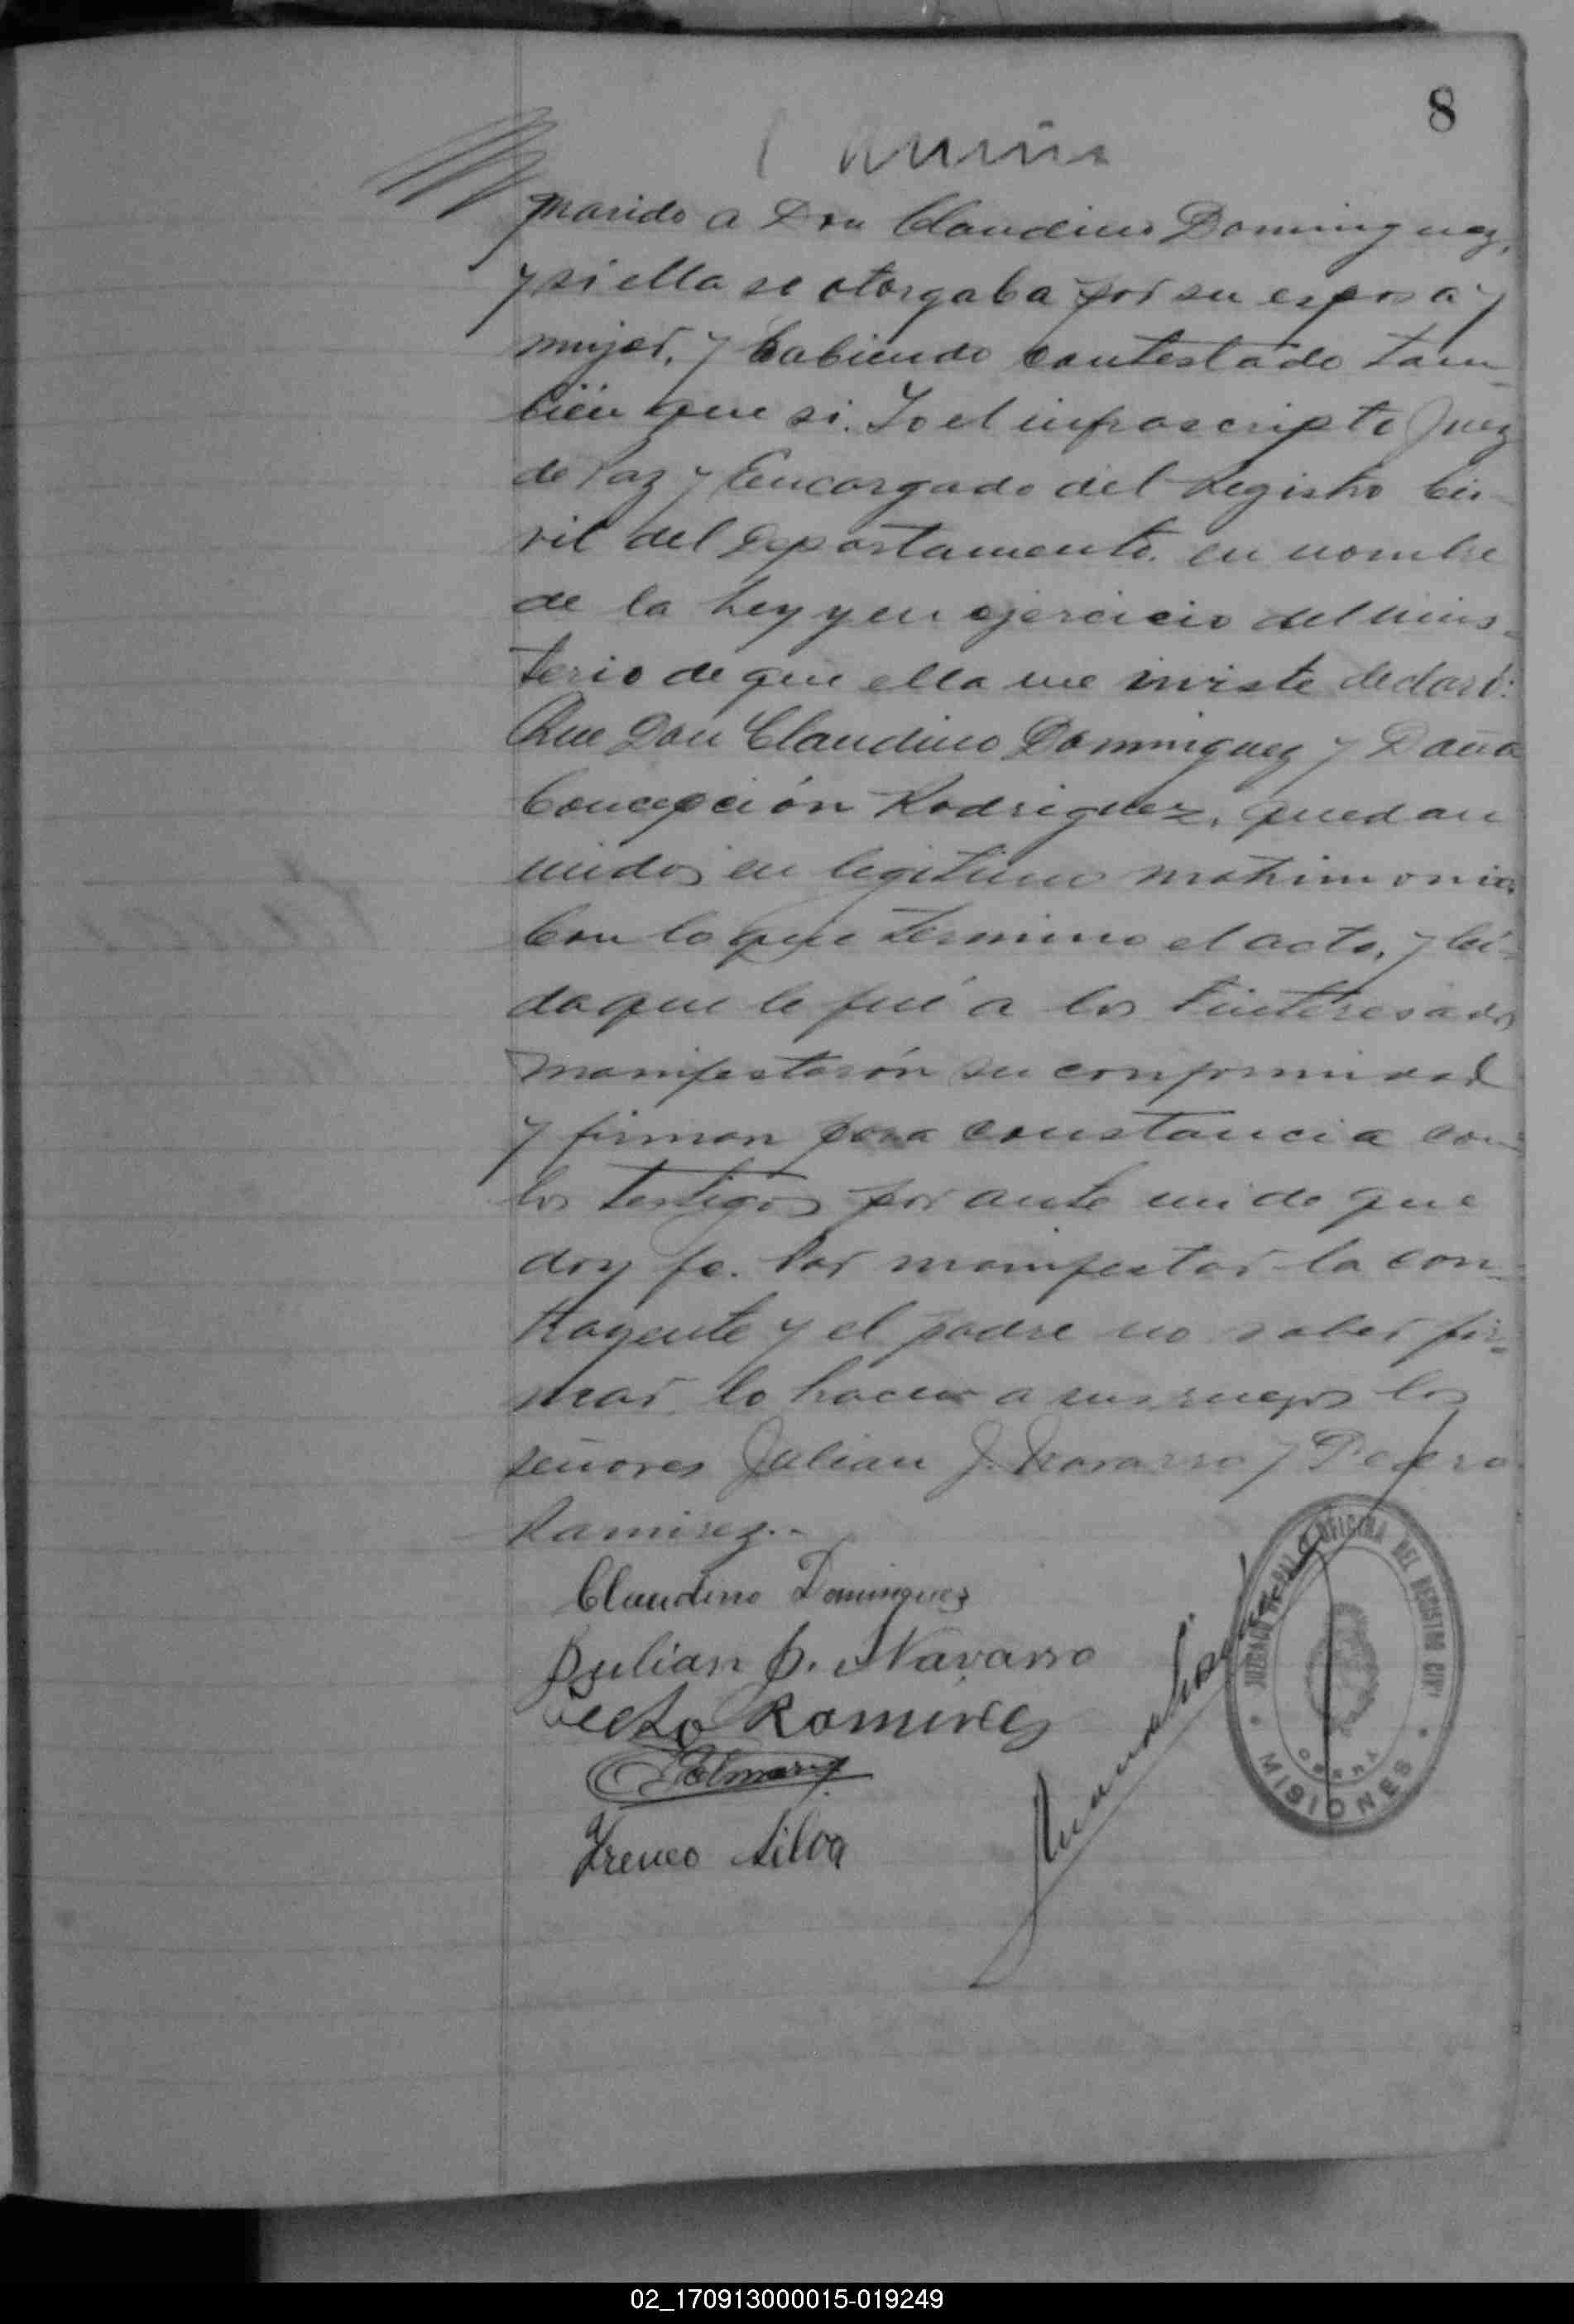 8
marido a Don Claudino Dominguez,
y si ella se otorgaba por su esposa y
mujer, y habiendo contestado tam-
bién que si. Yo el infrascripto Juez
de Paz y Encargado del Registro Ci-
vil del Departamento, en nombre
de la Ley y en ejercicio del minis-
terio de que ella me inviste declaré:
Que Don Claudino Dominguez y Doña
Concepción Rodriguez, quedan
unidos en legitimo matrimonio.
Con lo que termino el acto, y leí-
da que le fué a los interesados
manifestarón su conformidad
y firman para constancia con
los testigos por ante mi de que
doy fe. Por manifestar la con-
trayente y el padre no saber fir-
mar, lo hacen a sus ruegos los
señores Julian J. Navarro y
Ramirez.-
Claudino Dominguez
Julian J. Navarro
Ramirez
Ireneo Silva
JUZGADO DE PAZ Y OFICINA DEL REGISTRO CIVIL
MISIONES
02_170913000015-019249